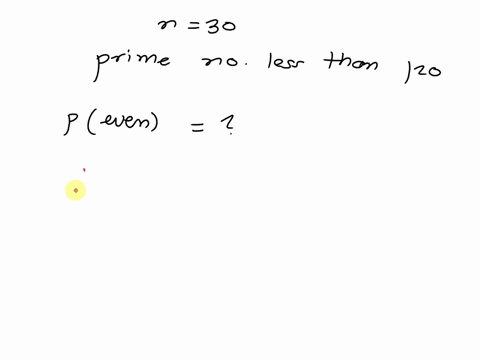 n = 30
prime no. less than 120
P (even) = ?